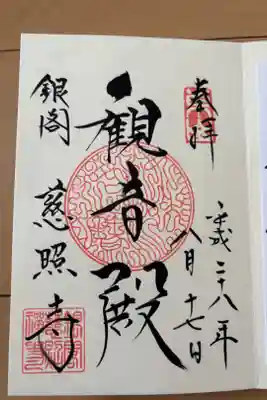 奉拝
平成二十八年
八月十七日
観音殿
銀閣
慈照寺